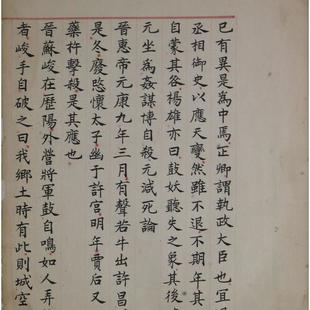 已有異是為中焉正卿謂執政大臣也宜
丞相御史以應天變然雖不退不期年其
自蒙其咎楊雄亦曰鼓妖聽失之象其後
元坐為姦謀博自殺元減死論
晉惠帝元康九年三月有聲若牛出許昌
是冬廢愍懷太子幽于許宮明年賈后又
藥杵擊殺是其應也
晉蘇峻在歷陽外營將軍鼓自鳴如人弄
者峻手自破之曰我鄉土時有此則城空